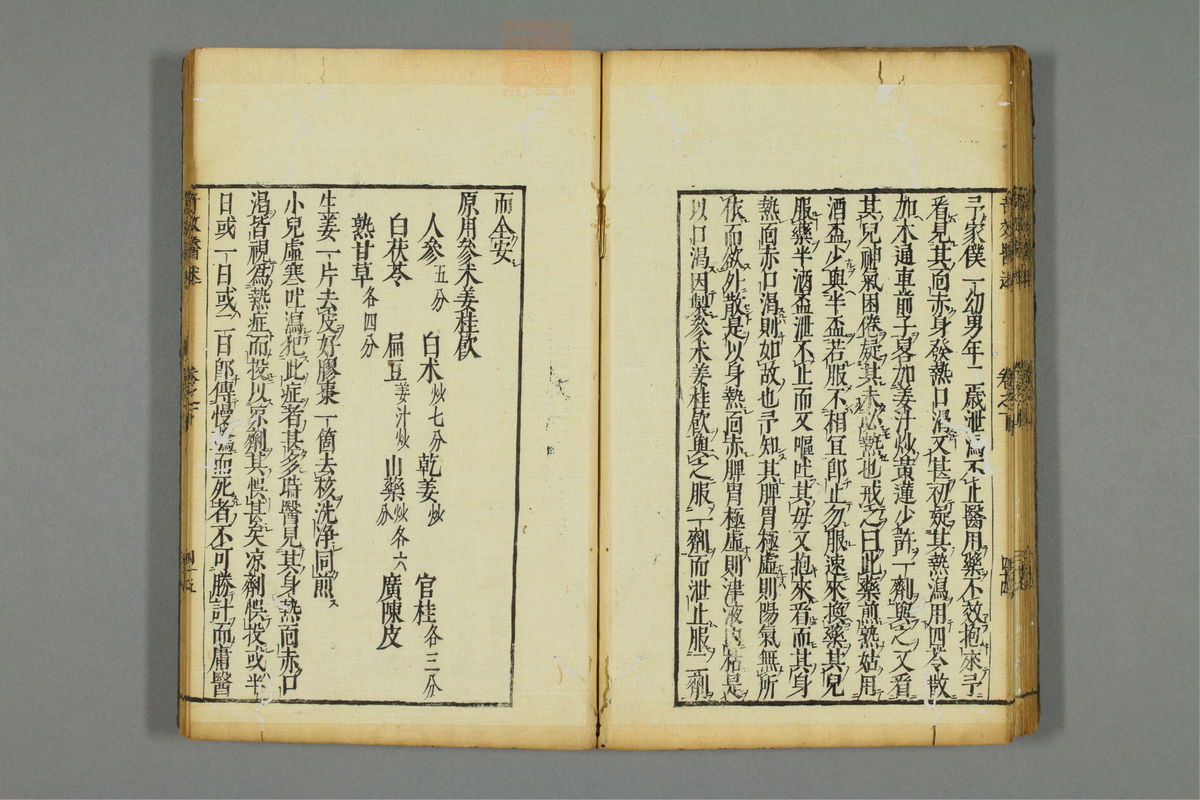 予家僕一幼男年二歳泄瀉不止醫用藥不效抱來予
看見其面赤身發熱口渴又甚初疑其熱瀉用四苓散
加木通車前子畧加姜汁炒黄連少許一劑與之又看
其兒神氣困倦疑其未必熱也戒之曰此藥煎熟姑用
酒盃少與半盃若服不相宜即止勿服速來換藥其兒
服藥半酒盃泄不止而又嘔吐其母又抱來看而其身
熱面赤口渴則如故也予知其脾胃極虚則陽氣無所
依而欲外散是以身熱面赤脾胃極虚則津液内枯是
以口渴因製參术姜桂飲與之服一劑而泄止服二劑
而全安
原用參术姜桂飲
人參五分 白术炒七分 乾姜炒 官桂各三分
白茯苓 扁豆姜汁炒 山藥炒各六分 廣陳皮
熟甘草各四分
生姜一片去皮好膠棗一箇去核洗净同煎
小兒虚寒吐瀉犯此症者甚多時醫見其身熱面赤口
渴皆視爲熱症而投以凉劑其悮甚矣凉劑悮投或半
日或一日或二日即傳慢驚而死者不可勝計而庸醫